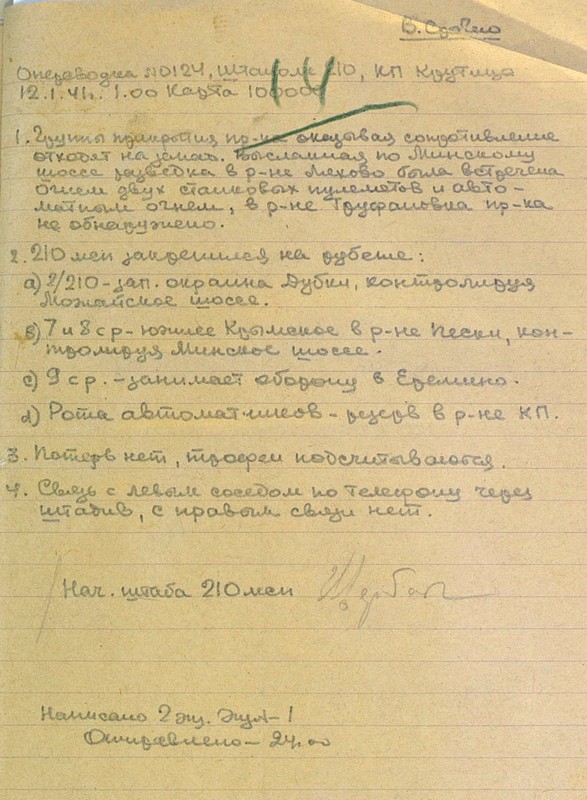 В. Срочно
14
Оперсводка №0124, Штаполк 210, КП Крутица
12.1.41. 1.00 Карта 100000
1. Группы прикрытия пр-ка оказывая сопротивление
отходят на запад. Высланная по Минскому
шоссе разведка в р-не Ляхово была встречена
огнем двух станковых пулеметов и авто-
матным огнем, в р-не Труфановка пр-ка
не обнаружено.
2. 210 мсп закрепился на рубеже:
а) 2/210-зап. окраина Дубки, контролируя
Можайское шоссе.
в) 7 и 8 ср-южнее Крымское в р-не Пески, кон-
тролируя Минское шоссе.
с) 9 ср.-занимает оборону в Еремино.
d) Рота автоматчиков-резерв в р-не КП.
3. Потерь нет, трофеи подсчитываются.
4. Связь с левым соседом по телефону через
штадив, с правым связи нет.
Нач. штаба 210 мсп
Написано 2 экз. Экз-1
Отправлено- 24.00